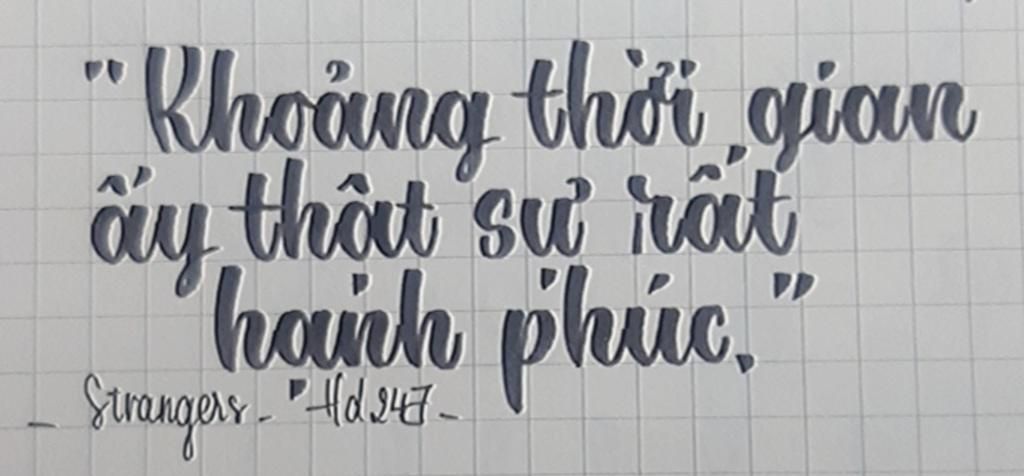 "Khoảng thời gian
ấy thật sự rất
hạnh phúc."
- Strangers - Hd247 -